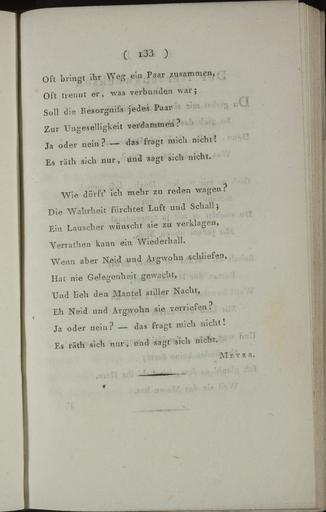 ( 133 )
Oft bringt ihr Weg ein Paar zusammen,
Oft trennt er, was verbunden war;
Soll die Besorgniſs jedes Paar
Zur Ungeselligkeit verdammen?
Ja oder nein? — das fragt mich nicht!
Es räth sich nur, und sagt sich nicht.
Wie dürft' ich mehr zu reden wagen?
Die Wahrheit fürchtet Luft und Schall;
Ein Lauscher wünscht sie zu verklagen,
Verrathen kann ein Wiederhall.
Wenn aber Neid und Argwohn schliefen,
Hat nie Gelegenheit gewacht,
Und lieh den Mantel stiller Nacht,
Eh Neid und Argwohn sie verriefen?
Ja oder nein? — das fragt mich nicht!
Es räth sich nur, und sagt sich nicht.
MEYER.